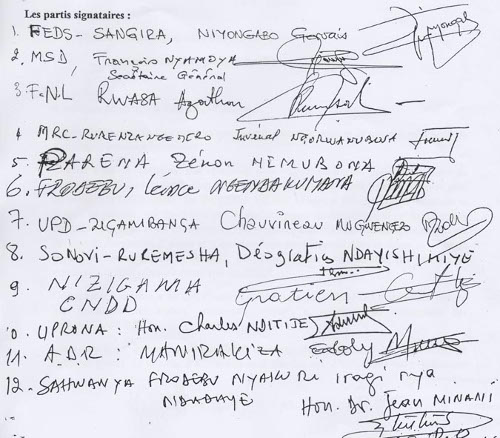 Les partis signataires :
1. FEDS - SANGIRA, NIYONGABO Gervais
2. MSD, François NYAMOYA
Secrétaire Général
3. FNL RWASA Agathon
4 MRC-RURENZANGEMERO Juvénal NGORWANUBUSA
5. PARENA Zénon NIMUBONA
6. FRODEBU, Léonce NGENDAKUMANA
7. UPD - ZIGAMIBANGA Chauvineau MUGWENGEZO
8. SONOVI-RUREMESHA, Déogratias NDAYISHIMIYE
9 NIZIGAMA Gratien
CNDD
10. UPRONA : Hon. Charles NDITIJE
11. A.D.R : MANIRAKIZA
12. SAHWANYA FRODEBU NYAKURI Iragi rya
NDADAYE Hon. Dr. Jean MINANI